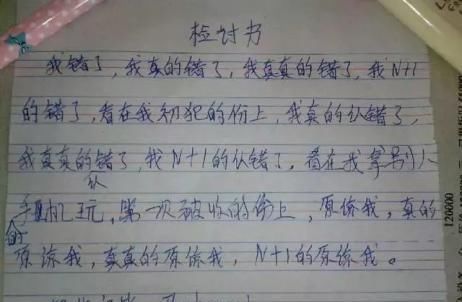 检讨书
我错了，我真的错了，我真真的错了，我N+1
的错了，看在我初犯的份上，我真的认错了，
我真真的认错了，我N+1的认错了，看在我拿别人
的手机玩，第一次被收的份上，原谅我，真的
原谅我，真真的原谅我，N+1的原谅我。
120000